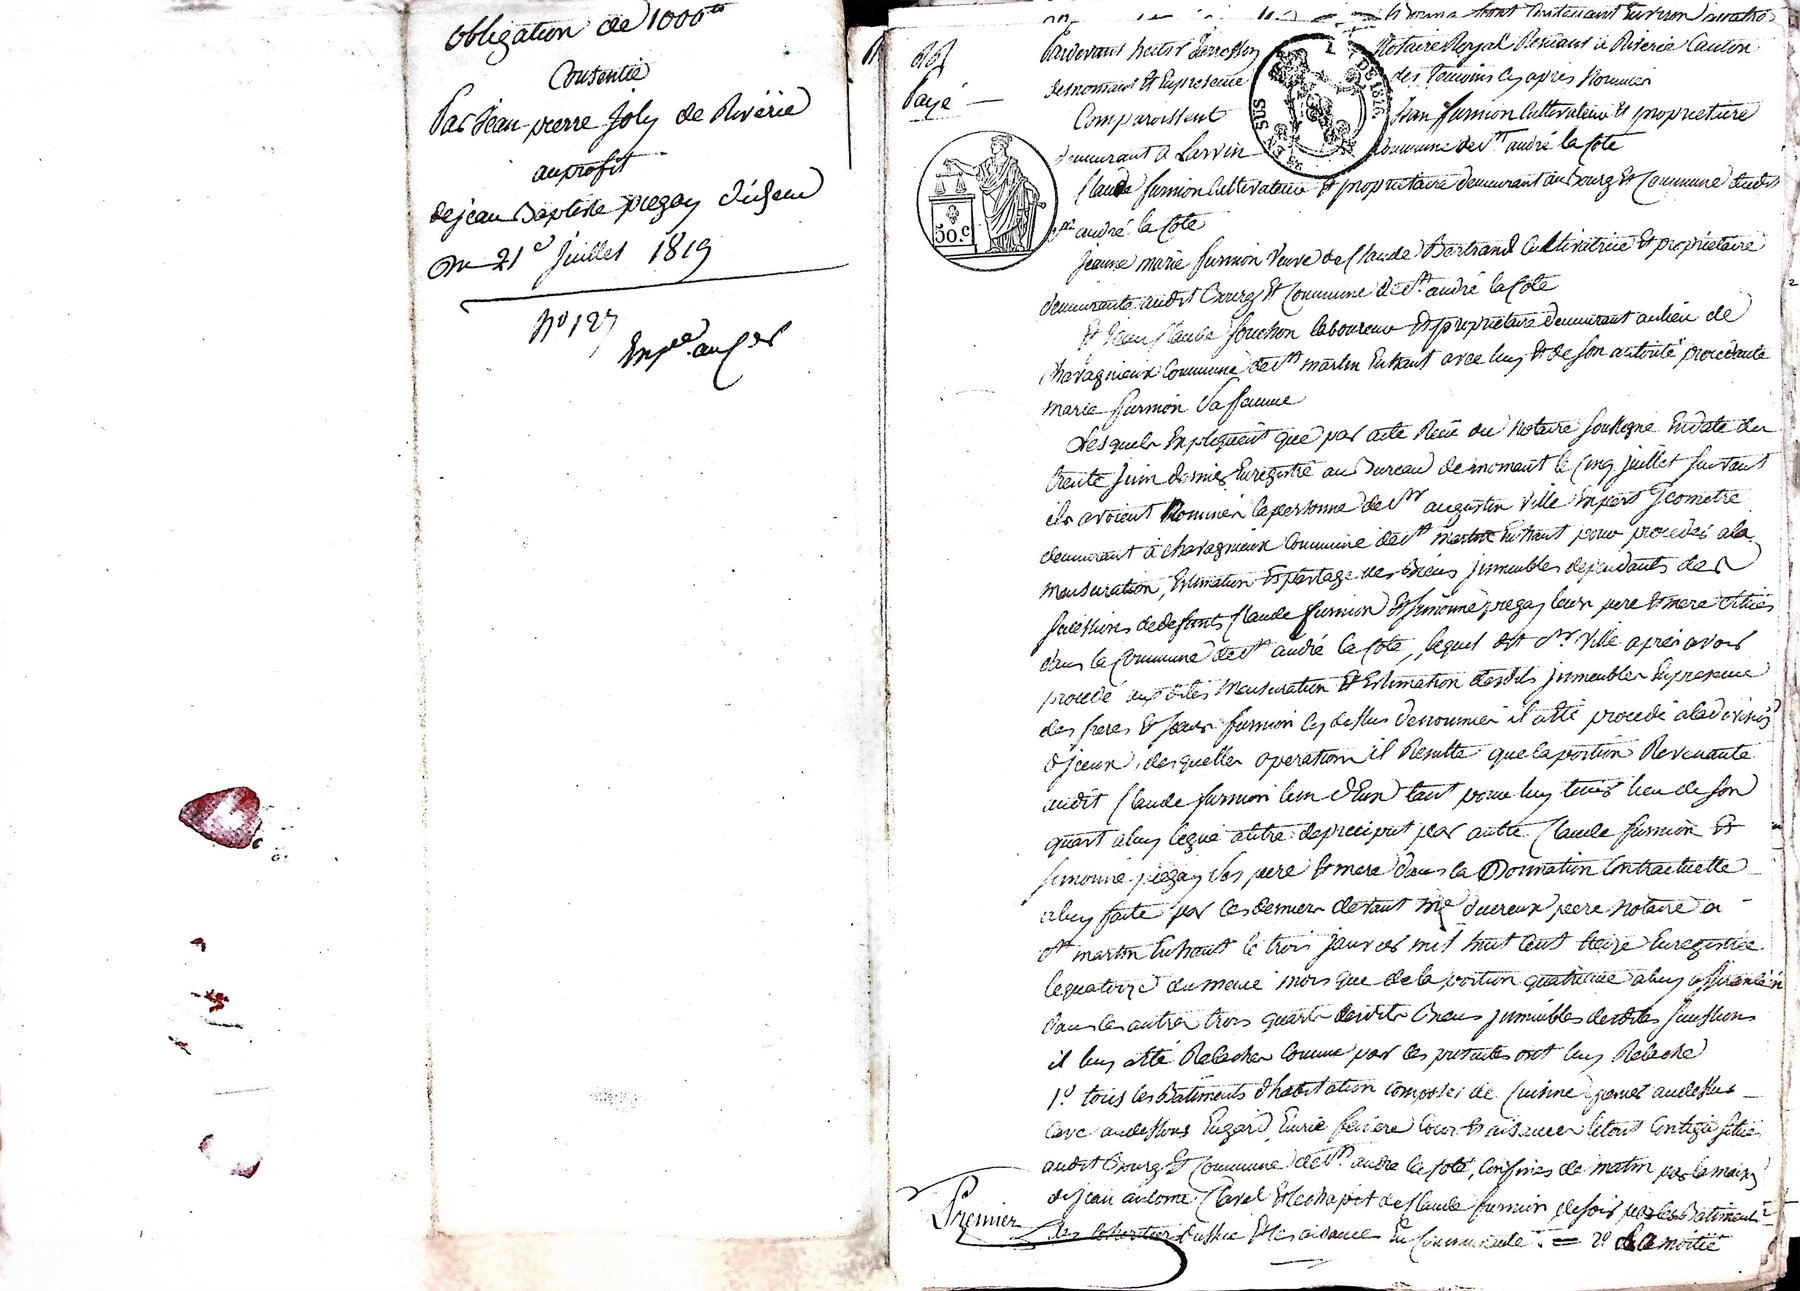 obligation de 1000 tt
Consentie
Par Jean pierre Joly de Rivérie
au profit
de jean Baptiste piegay
Du 21e Juillet 1819
No 127
Payé
50.c
DE 1816
EN SUS
Pardevant
Notaire Royal Résidant à Riverie Canton
de mornant Et En presence
des temoins cy après Nommés
Comparoissent
Jean furnion Cultivateur Et proprietaire
demeurant à
Commune de st andré la Cote
Claude furnion Cultivateur Et proprietaire demeurant au Bourg Et Commune dudit
st andré la Cote
Jeanne marie furnion Veuve de Claude Bertrand Cultivatrice Et propriétaire
demeurante audit Bourg Et Commune de st andré la Cote
Et Jean Claude Souchon laboureur Et propriétaire demeurant au lieu de
Chavagnieux Commune de st martin En haut avec luy Et de son autorité procedante
marie furnion sa femme
Lesquels Expliquent que par acte Reçu du Notaire soussigné En date du
trente Juin dernier Enregistré au Bureau de mornant le Cinq juillet suivant
ils avoient Nommés la personne de sr augustin Ville Expert Geometre
demeurant à Chavagnieux Commune de st martin En haut pour proceder a la
mensuration, Estimation Et partage des Biens jmmeubles dependants des
sucessions de defunts Claude furnion Et simonne piegay leur pere Et mere situés
dans la Commune de st andré la Cote, lequel dit sr Ville après avoir
procédé aux dites mensuration Et Estimation desdits jmmeubles En presence
des freres Et sœurs furnion cy dessus denommés il a été procedé a la division
d'jceux, desquelles operations il Resulte que la portion Revenante
audit Claude furnion l'un d'Eux tant pour luy tenir lieu de son
quart a luy legué a titre de preciput par autre Claude furnion Et
simonne piegay ses pere Et mere dans la Donnation Contractuelle
a luy faite par ces derniers devant me ducreux pere Notaire a
st martin En haut le trois janvier mil huit Cent treize Enregistrée
le quatorze du meme mois que de la portion quatrieme a luy afferante
dans les autres trois quarts desdits Biens jmmeubles desdites sucessions
il luy a été Relachés Comme par ces presentes ont luy Relache
1o tous les Batiments d'habitation composés de Cuisine grenier au dessus
Cave au dessous Engard, Ecurie feniere Cour Et aisances le tout Contigu situé
audit Bourg Et Commune de st andré la Cote, Confinés de matin par la maison
de jean antoine Clavel de soir par les Batiments
Et les aisances En Communauté. = 2o de la moitié
Premier